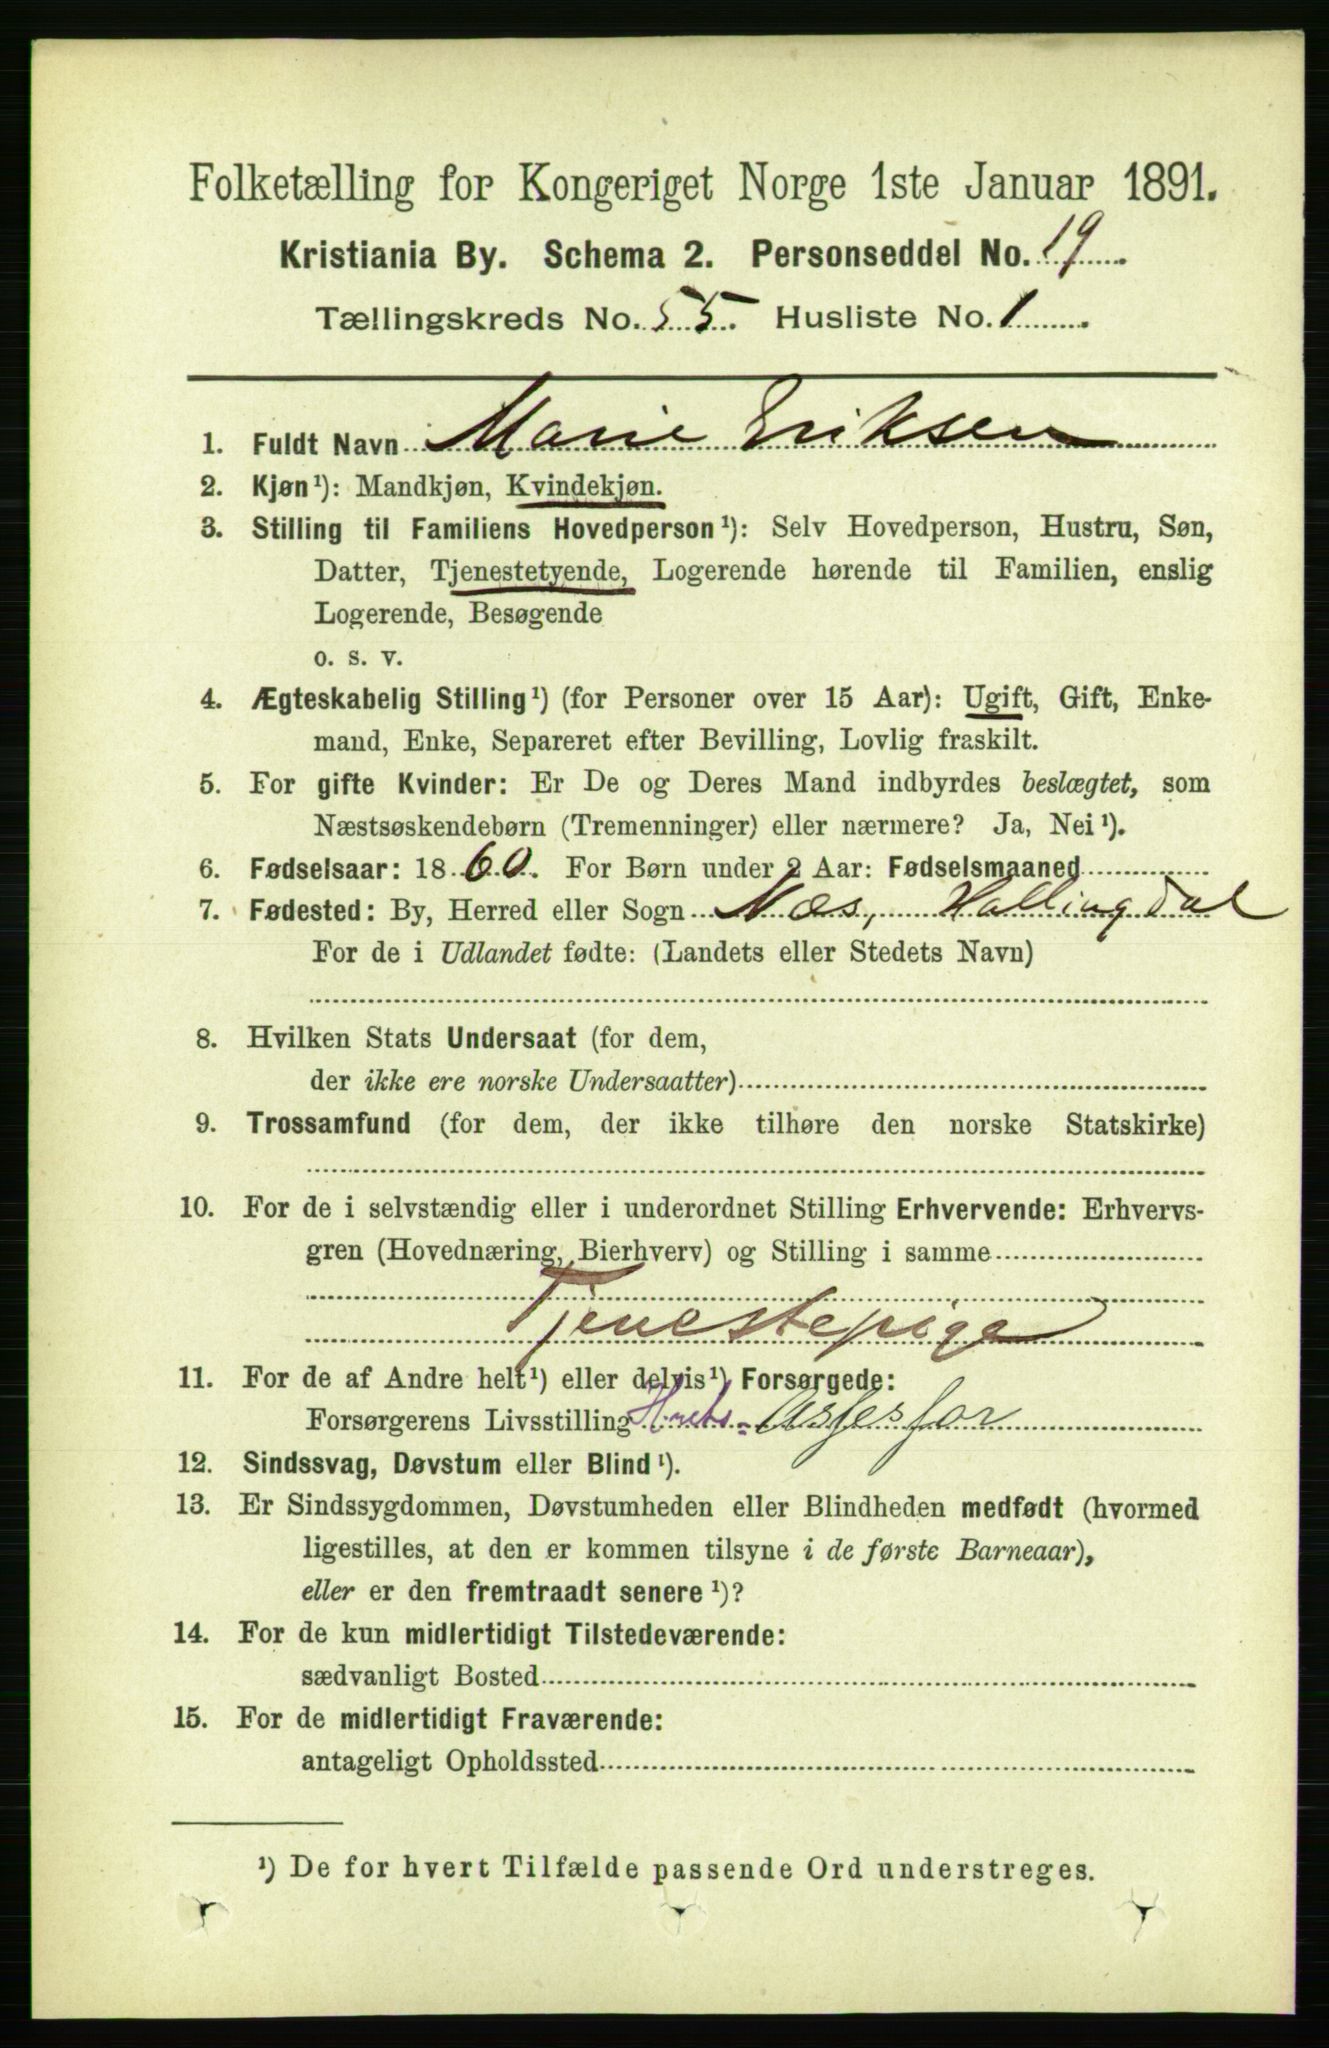 Folketælling for Kongeriget Norge 1ste Januar 1891.
Kristiania By. Schema 2. Personseddel No. 19.
Tællingskreds No. 55. Husliste No. 1.
1. Fuldt Navn Marie Eriksen
2. Kjøn¹): Mandkjøn, Kvindekjøn.
3. Stilling til Familiens Hovedperson¹): Selv Hovedperson, Hustru, Søn,
Datter, Tjenestetyende, Logerende hørende til Familien, enslig
Logerende, Besøgende
o. s. v.
4. Ægteskabelig Stilling¹) (for Personer over 15 Aar): Ugift, Gift, Enke-
mand, Enke, Separeret efter Bevilling, Lovlig fraskilt.
5. For gifte Kvinder: Er De og Deres Mand indbyrdes beslægtet, som
Næstsøskendebørn (Tremenninger) eller nærmere? Ja, Nei¹).
6. Fødselsaar: 1860. For Børn under 2 Aar: Fødselsmaaned
7. Fødested: By, Herred eller Sogn Næs, Hallingdal
For de i Udlandet fødte: (Landets eller Stedets Navn)
8. Hvilken Stats Undersaat (for dem,
der ikke ere norske Undersaatter)
9. Trossamfund (for dem, der ikke tilhøre den norske Statskirke)
10. For de i selvstændig eller i underordnet Stilling Erhvervende: Erhvervs-
gren (Hovednæring, Bierhverv) og Stilling i samme
Tjenestepige
11. For de af Andre helt¹) eller delvis¹) Forsørgede:
Forsørgerens Livsstilling
12. Sindssvag, Døvstum eller Blind¹).
13. Er Sindssygdommen, Døvstumheden eller Blindheden medfødt (hvormed
ligestilles, at den er kommen tilsyne i de første Barneaar),
eller er den fremtraadt senere¹)?
14. For de kun midlertidigt Tilstedeværende:
sædvanligt Bosted
15. For de midlertidigt Fraværende:
antageligt Opholdssted
¹) De for hvert Tilfælde passende Ord understreges.